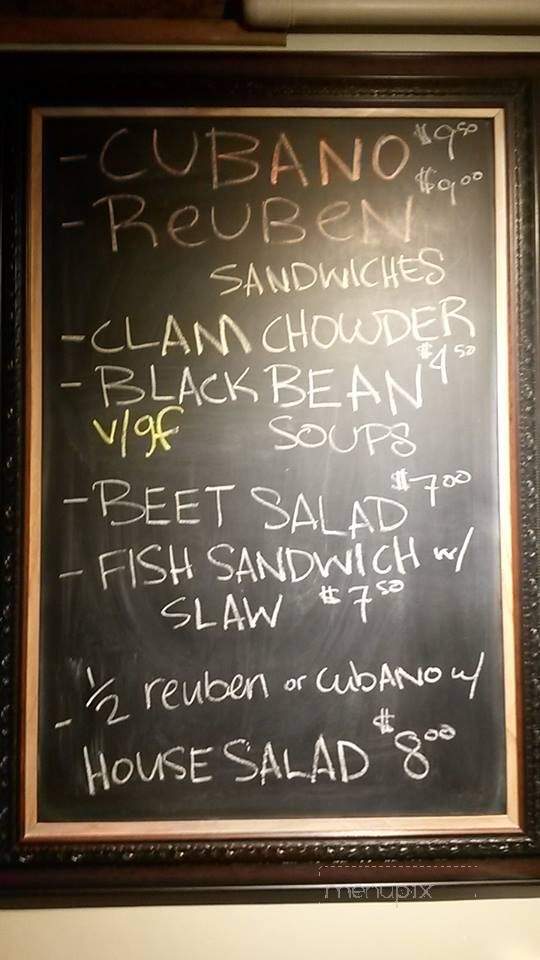 - CUBANO $9 50
- ReUBeN $9 00
SANDWICHES
- CLAM CHOWDER
- BLACK BEAN $4 50
v/gf SOUPS
- BEET SALAD $7 00
- FISH SANDWICH w/
SLAW $7 50
- 1/2 reuben or cubANO w/
HOUSE SALAD $8 00
menupix